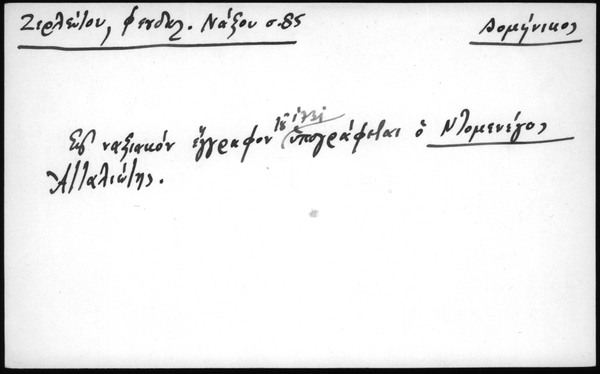 Ζερλέντου, Φεουδαλ. Νάξου σ. 85
Δομήνικος
Εἰς ναξιακόν ἔγγραφον ὑπογράφεται ὁ Ντομενέγος
Ἀτταλιώτης.